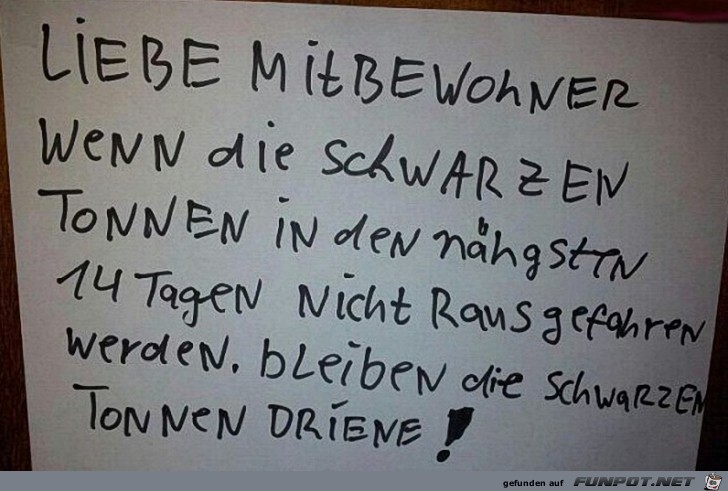 LiEBE MitBEWOhNER
WeNN die SchWARZEN
TONNEN iN deN nähgStTN
14 TageN Nicht Rausgefahren
werdeN. bLeibeN die SchwaRZEN
TONNEN DRIENE!
gefunden auf FUNPOT.NET